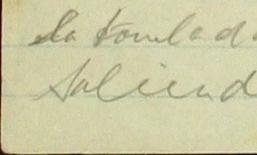 la tonelada
Saliend